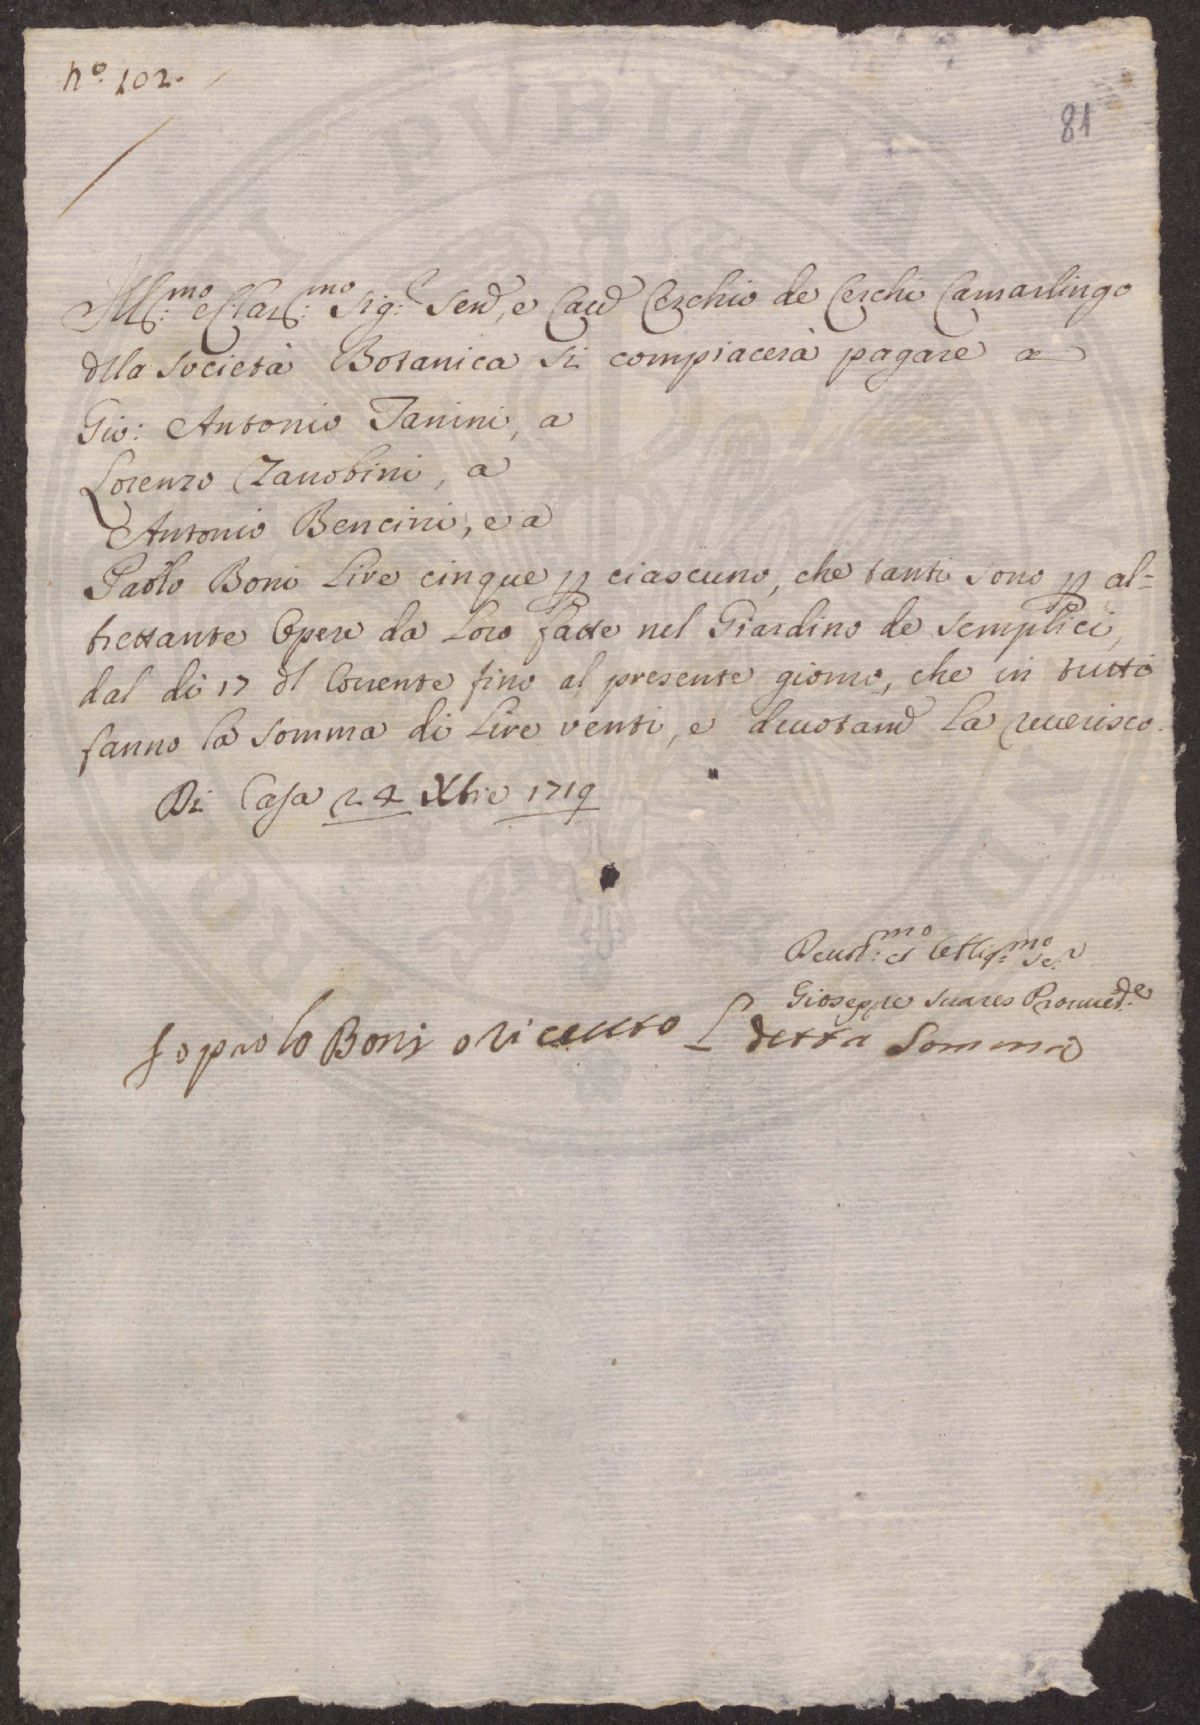 nº. 102.
81
Ill:mo e Clar:mo Sig:r Send, e Caud Cerchio de Cerchi Camarlingo
dlla Società Botanica si compiacerà pagare a
Gio: Antonio Tanini, a
Lorenzo Zanobini, a
Antonio Bencini, e a
Paolo Boni Lire cinque p ciascuno, che tanti sono p al=
trettante Opere da Loro fatte nel Giardino de Semplici,
dal di 17 dl Corrente fino al presente giorno, che in tutto
fanno la somma di Lire venti, e deuotamd La reuerisco.
Di Casa 24 Xbre 1719
Deuot:mo et Obblig:mo Se:r
Gioseppe Suares Prouued.re
Io paolo Boni o riceuto L detta Somma